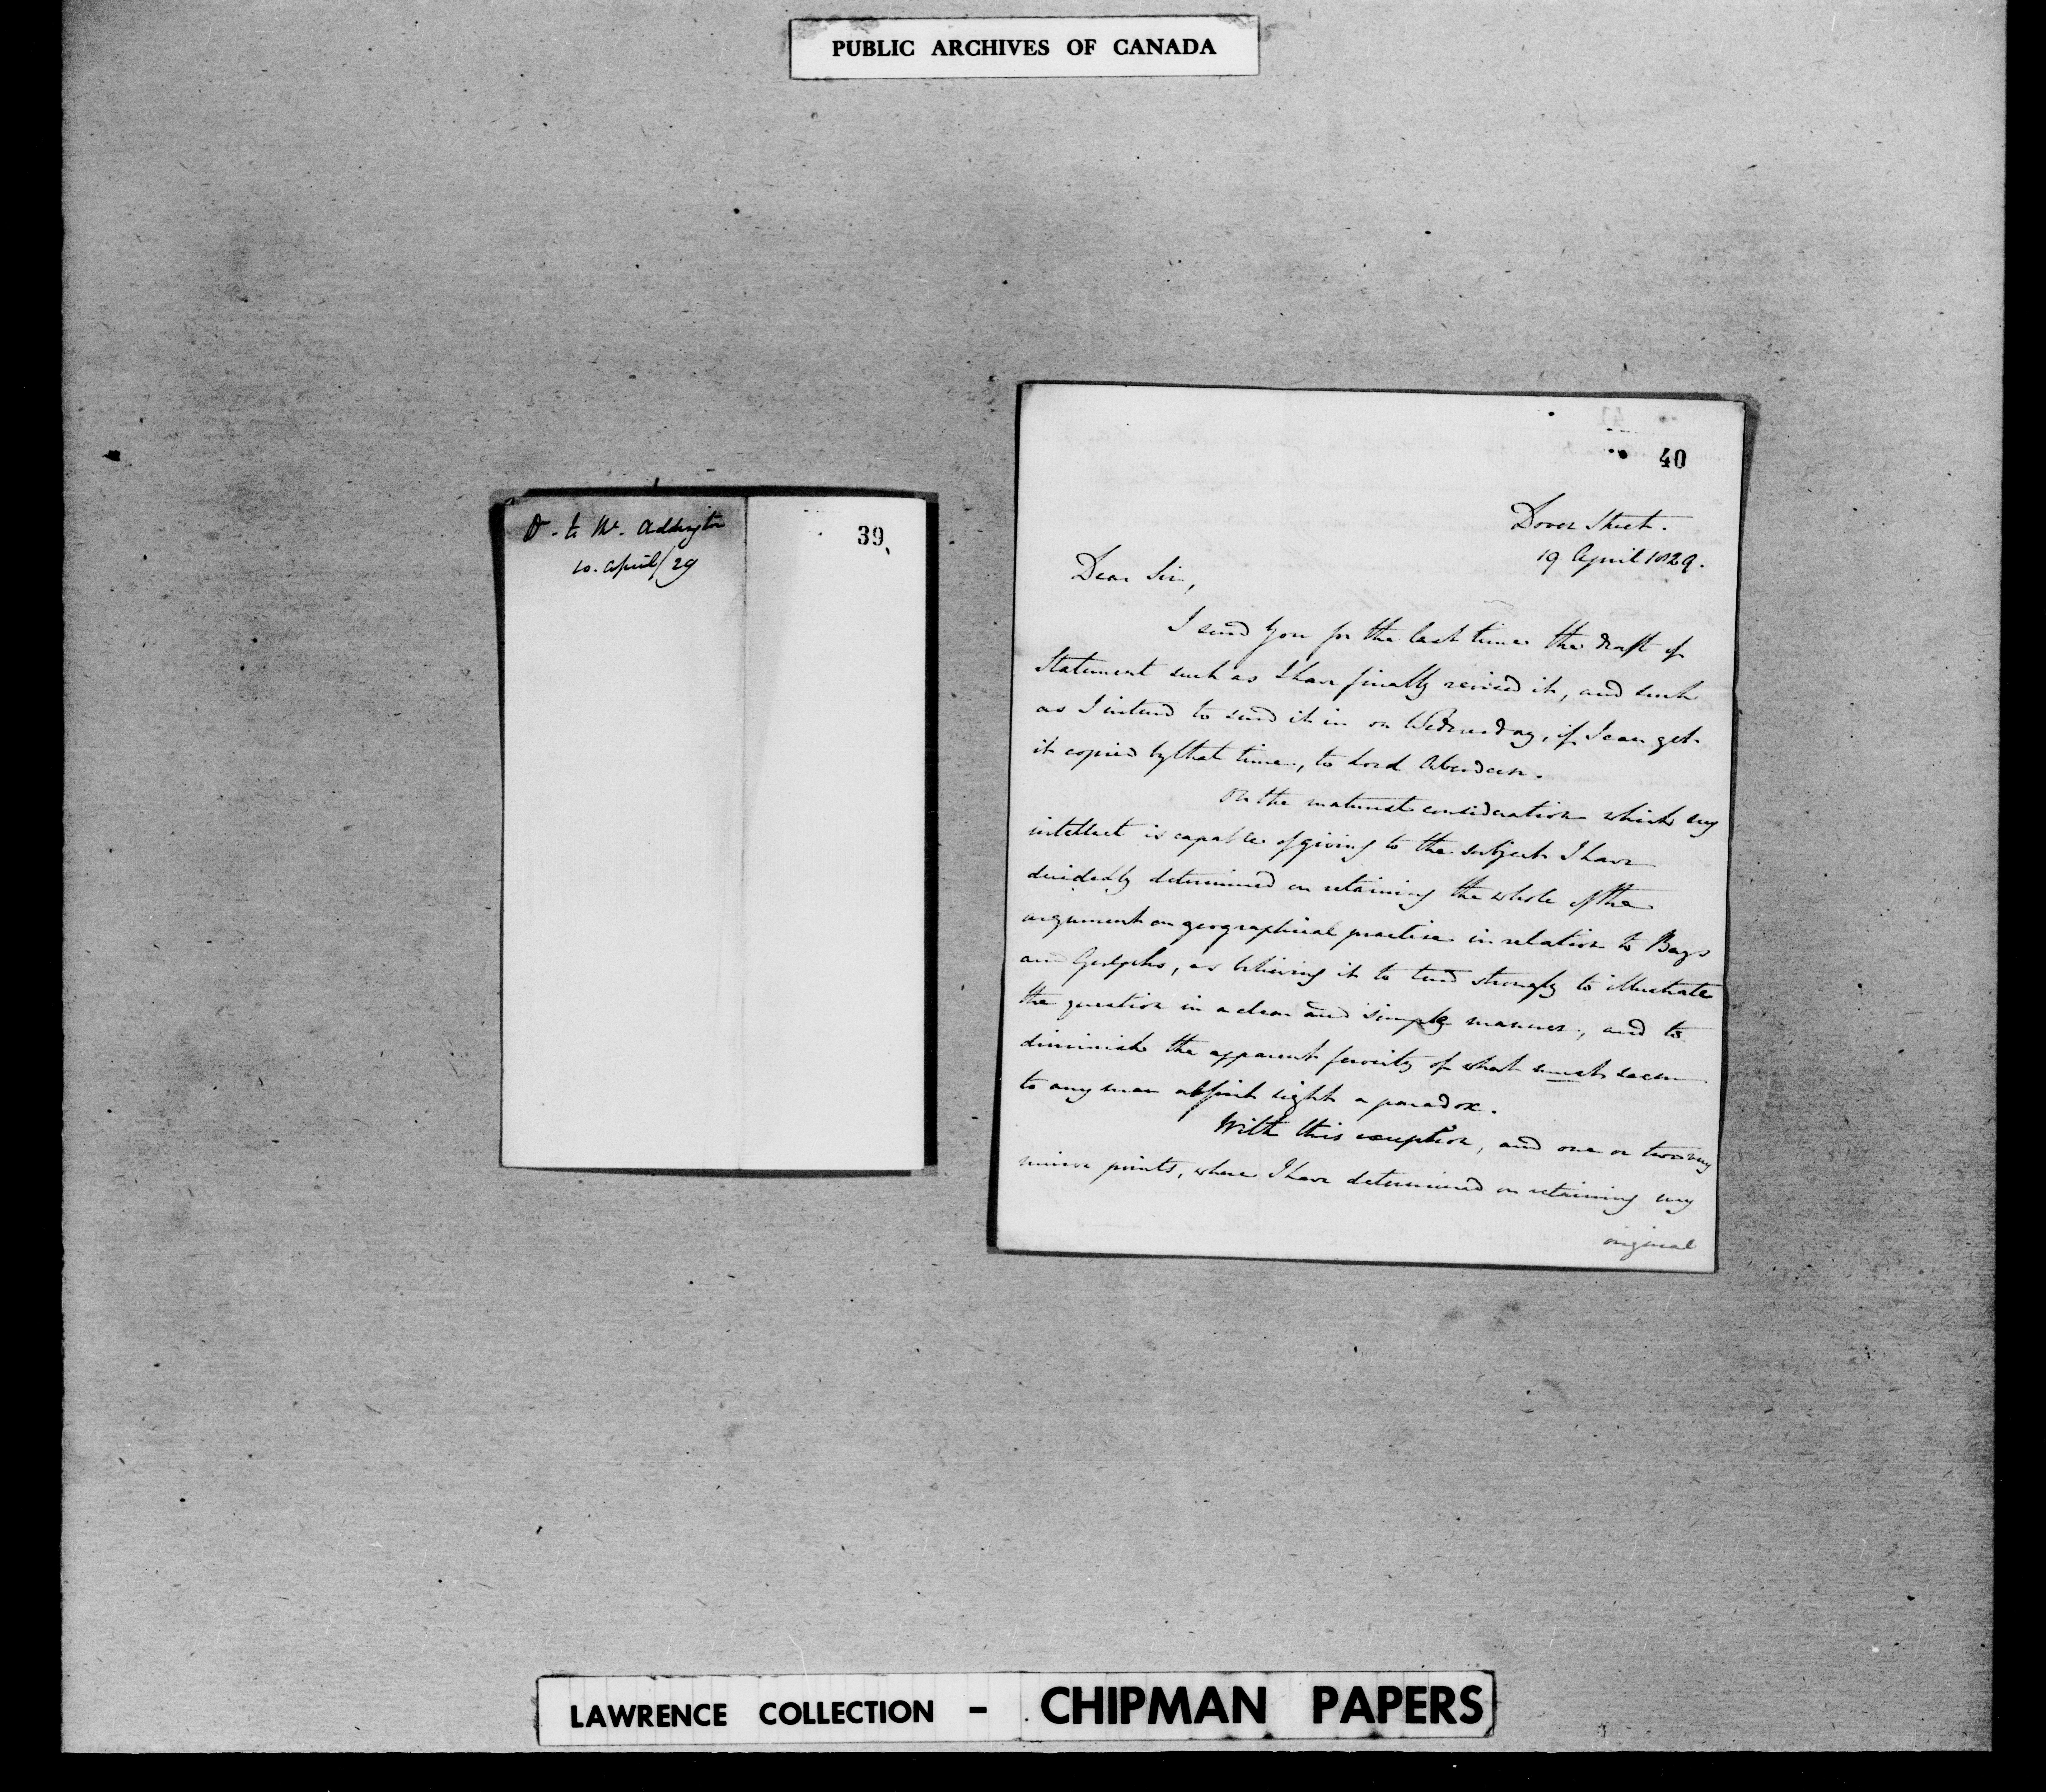 PUBLIC ARCHIVES OF CANADA
Dt. to Mr. Addington
10. April/29
39
40
Dover Street.
19 April 1829.
Dear Sir,
I send you for the last time the draft of
Statement such as I have finally revised it, and such
as I intend to send it in on Wednesday, if I can get
it copied by that time, to Lord Aberdeen.
On the maturest consideration which my
intellect is capable of giving to the subject I have
decidedly determined on retaining the whole of the
argument on geographical practice in relation to Bays
and Gulphs, as believing it to tend strongly to illustrate
the question in a clear and simple manner, and to
diminish the apparent ferocity of what must seem
to any man at first sight a paradox.
With this exception, and one or two very
minor points, where I have determined on retaining my
original
LAWRENCE COLLECTION - CHIPMAN PAPERS